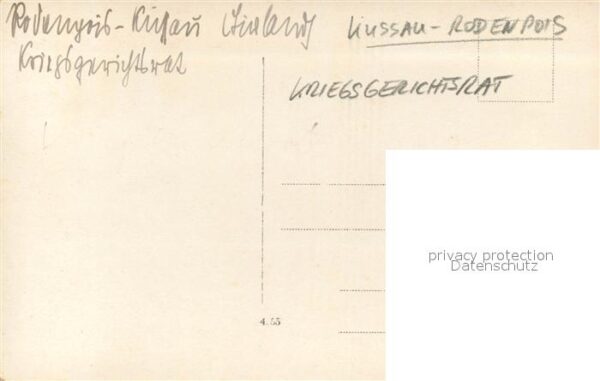 Rodenpois-Kussau Livland
Kriegsgerichtsrat
KUSSAU-RODENPOIS
KRIEGSGERICHTSRAT
4.55
privacy protection
Datenschutz